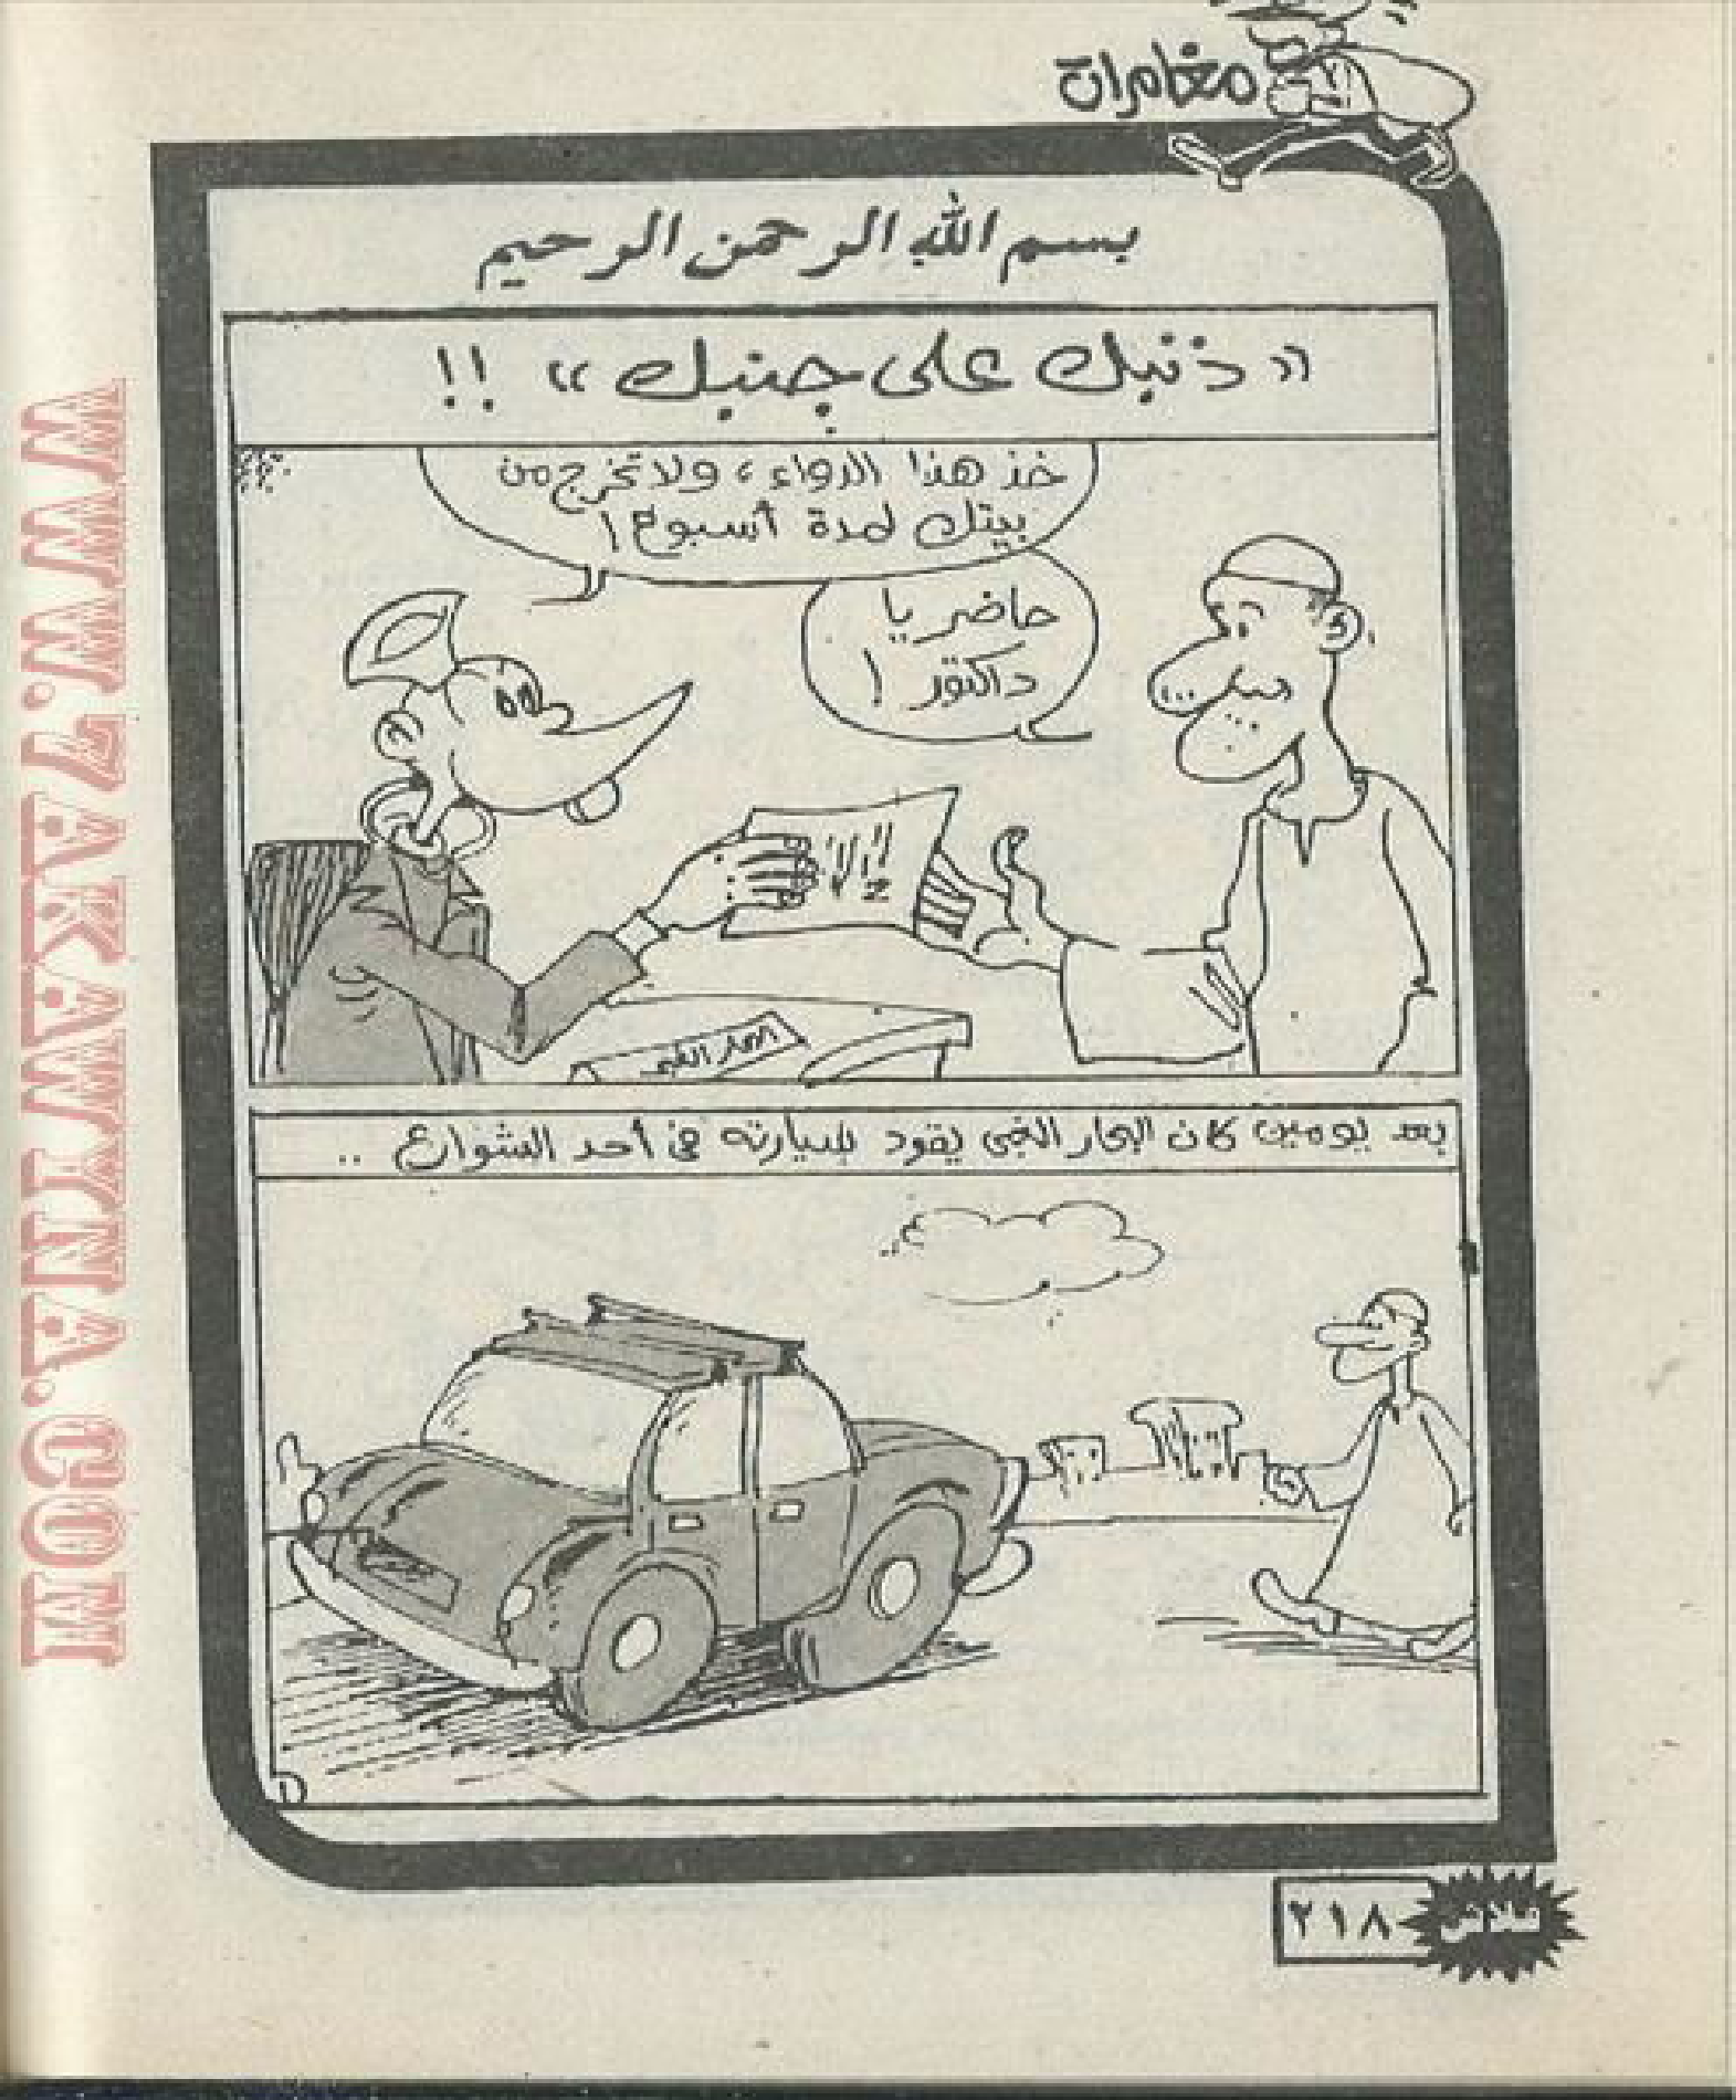 مغامرات
بسم الله الرحمن الرحيم
«ذنبك على جنبك» !!
خذ هذا الدواء ، ولا تخرج من
بيتك لمدة أسبوع !
حاضر يا
داكتور !
بعد يومين كان البحار الغبى يقود سيارته فى أحد الشوارع ..
١
فلاش
٢١٨
WWW.7AKAWITNA.COM